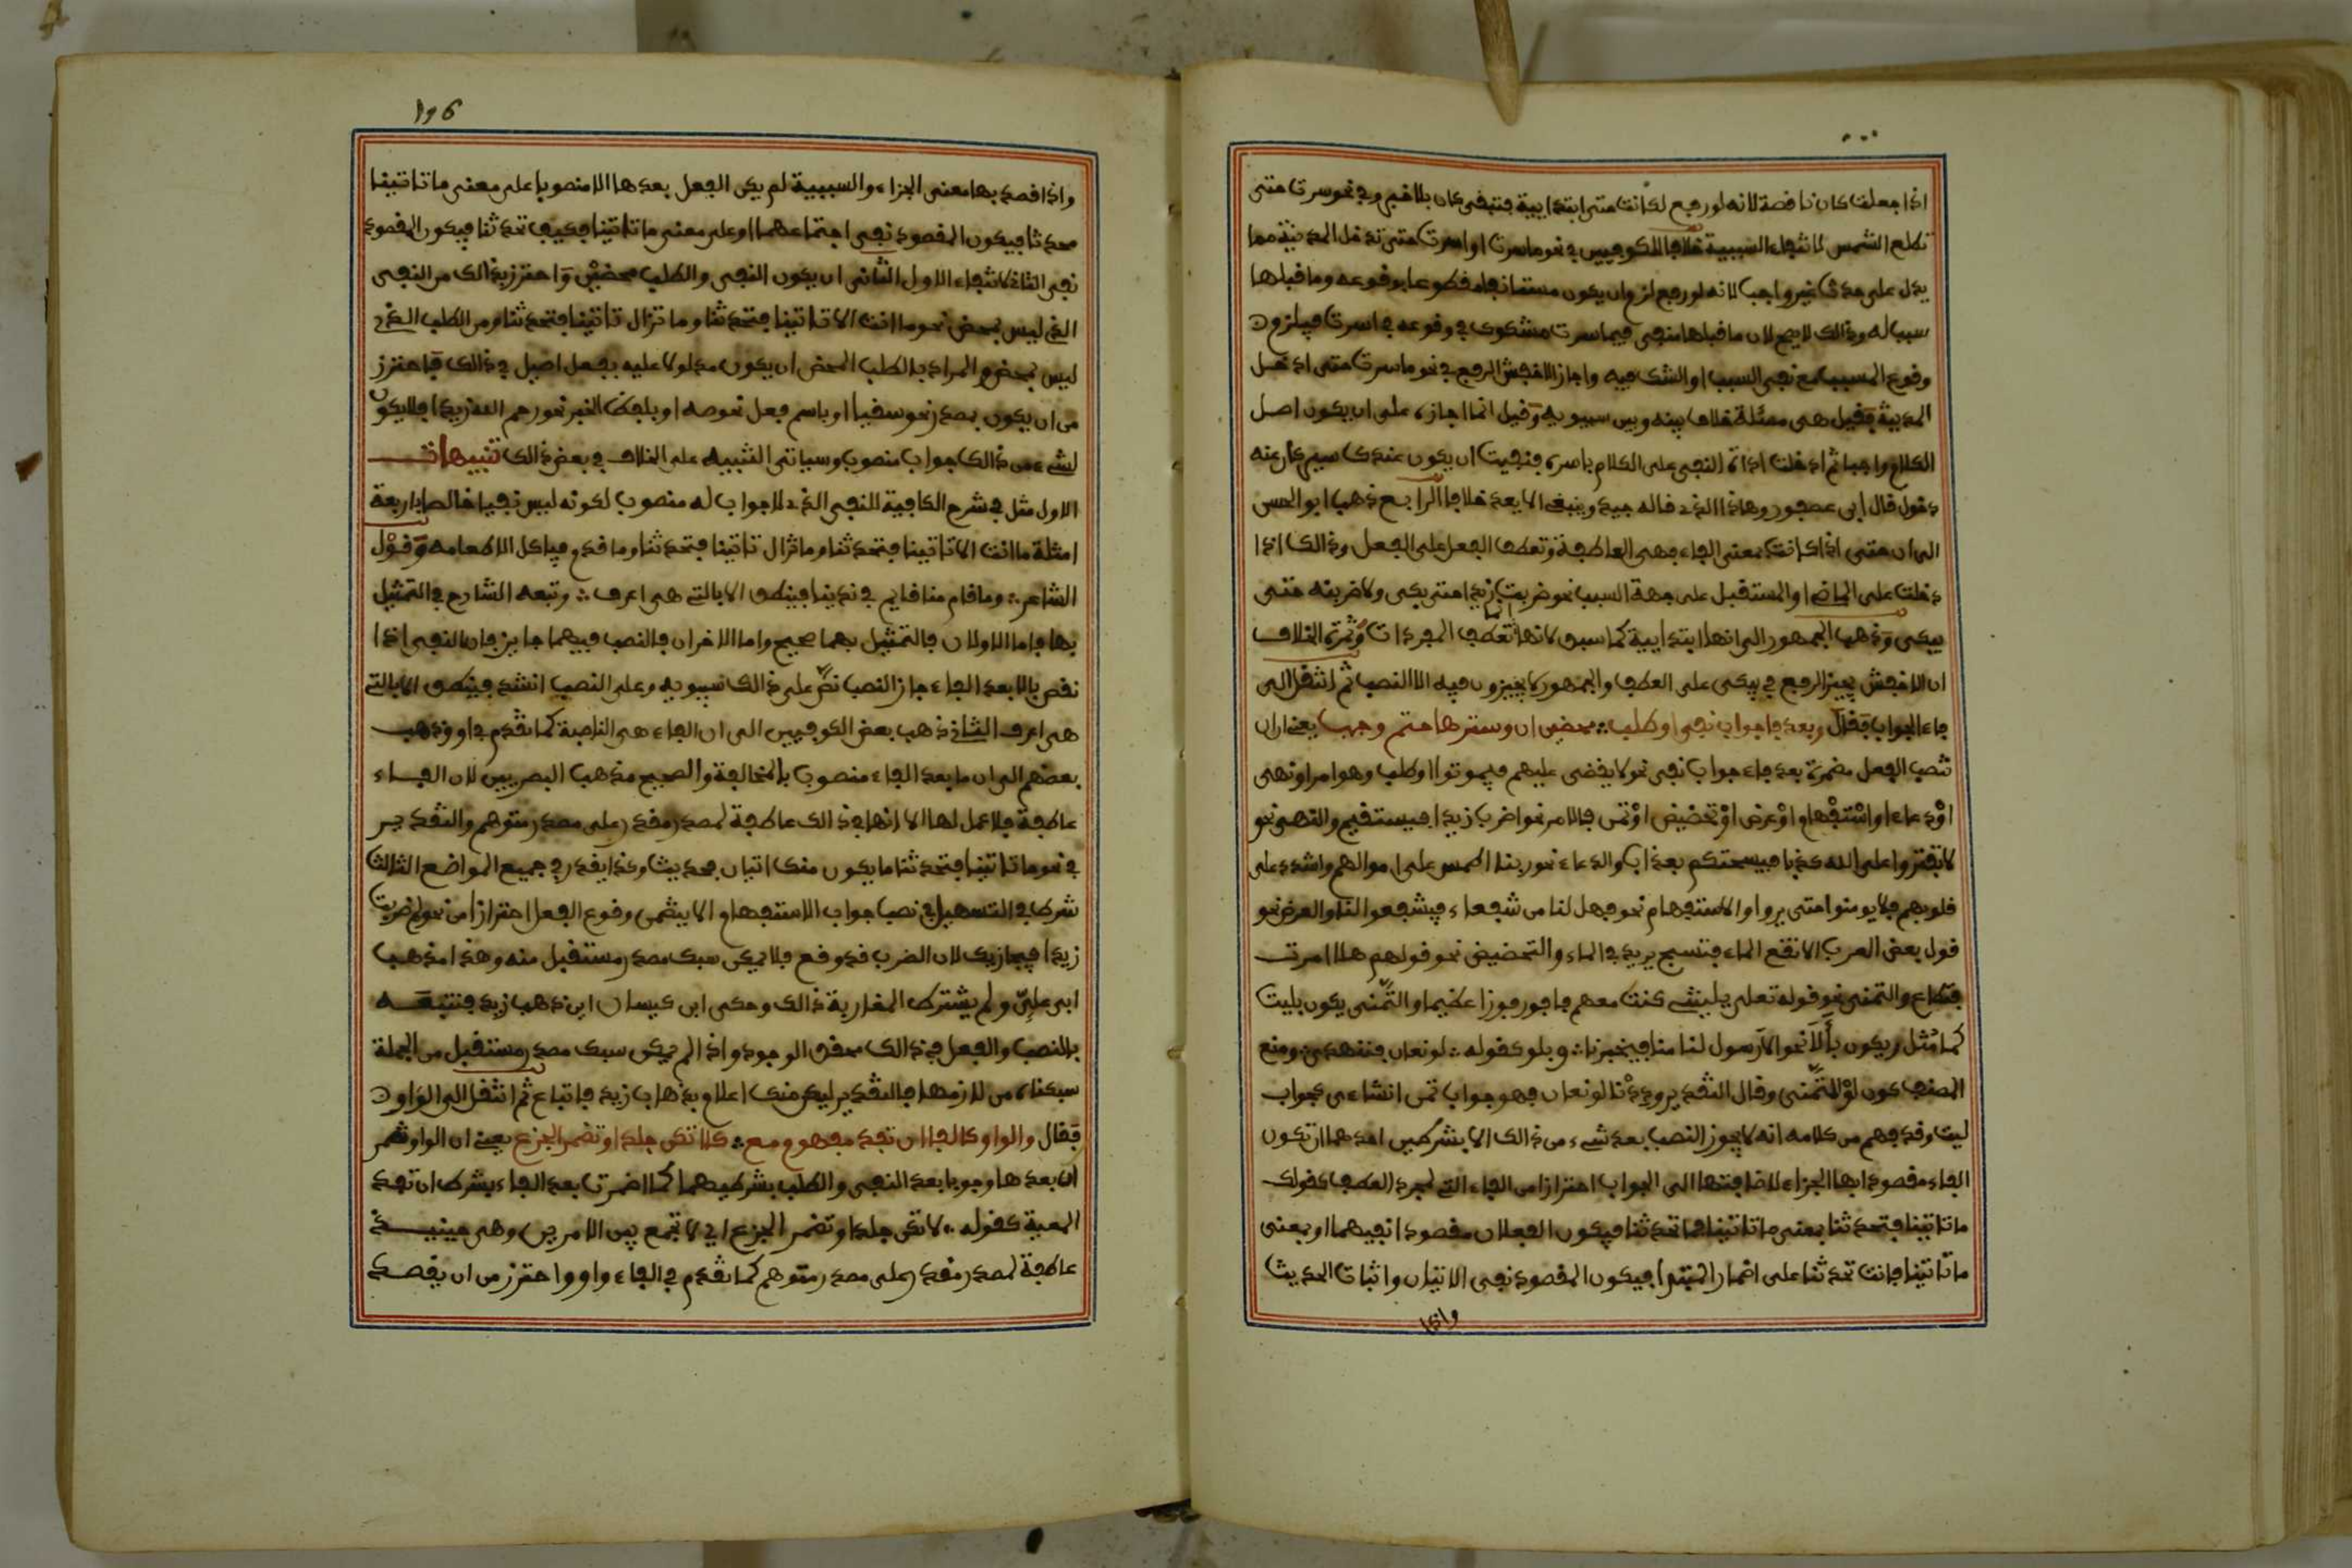 اذا جعلت كان ناقصة لانه لو رجع لكانت حتى ابتدايية فتبقى كان بلا خبر وفي نحو سرت حتى
تطلع الشمس لانتفاء السببية خلافا للكوفيين في نحو ما سرت او اسرت حتى تدخل المدينة مما
يدل على حدث غير واجب لانه لو رفع لزم ان يكون مستانفا مقطوعا بوقوعه وما قبلها
سببا له وذالك لا يصح لان ما قبلها منفى فيما سرت مشكوك في وقوعه في اسرت فيلزم
وقوع المسبب مع نفى السبب او الشك فيه واجاز الاخفش الرفع في نحو ما سرت حتى ادخل
المدينة فقيل هى مسئلة خلاف بينه وبين سيبويه وقيل انما اجازه على ان يكون اصل
الكلام واجبا ثم ادخلت اداة النفى على الكلام باسره فنفيت ان يكون عندك سير كان عنه
دخول قال ابن عصفور وهاذا الذي قاله جيد وينبغى الا يعد خلافا الرابع ذهب ابو الحسن
الى ان حتى اذا كانت بمعنى الفاء فهى العاطفة وتعطف الفعل على الفعل وذالك اذا
دخلت على الماضى او المستقبل على جهة السبب نحو ضربت زيدا حتى بكى ولاضربنه حتى
يبكى وذهب الجمهور الى انها ابتدايية كما سبق لانها انما تعطف المفردات وثمرة الخلاف
ان الاخفش يجيز الرفع في يبكى على العطف والجمهور لا يجيزون فيه الا النصب ثم انتقل الى
فاء الجواب فقال وبعد فا جواب نفى او طلب محضين ان وسترها حتم وجب يعنى ان ان
تنصب الفعل مضمرة بعد فاء جواب نفى نحو لا يقضى عليهم فيموتوا او طلب وهو امر او نهى
او دعاء او استفهام او عرض او تحضيض او تمن فالامر نحو اضرب زيدا فيستقيم والنهى نحو
لا تفتروا على الله كذبا فيسحتكم بعذاب والدعاء نحو ربنا اطمس على اموالهم واشدد على
قلوبهم فلا يومنوا حتى يروا والاستفهام نحو فهل لنا من شفعاء فيشفعوا لنا والعرض نحو
قول بعض العرب الا تقع الماء فتسبح يريد في الماء والتحضيض نحو قولهم هلا امرت
فتطاع والتمنى نحو قوله تعلى يليتنى كنت معهم فافوز فوزا عظيما والتمنى يكون بليت
كما مثل ويكون بألا نحو الا رسول لنا منا فيخبرنا وبلو كقوله لو نعان فننهدى ومنع
المصنف كون لو للتمنى وقال التقدير وددنا لو نعان فهو جواب تمن انشاءى كجواب
ليت وقد فهم من كلامه انه لا يجوز النصب بعد شيء من ذالك الا بشرطين احدهما ان تكون
الفاء مقصودا بها الجزاء لاضافتها الى الجواب احترازا من الفاء التى لمجرد العطف كقولك
ما تاتينا فتحدثنا بمعنى ما تاتينا فما تحدثنا فيكون الفعلان مقصودا نفيهما او بمعنى
ما تاتينا فانت تحدثنا على اضمار المبتدإ فيكون المقصود نفى الاتيان واثبات الحديث
واذا
196
واذا قصد بها معنى الجزاء والسببية لم يكن الفعل بعدها الا منصوبا على معنى ما تاتينا
محدثا فيكون المقصود نفى اجتماعهما او على معنى ما تاتينا فكيف تحدثنا فيكون المقصود
نفى الثانى لانتفاء الاول الثانى ان يكون النفى والطلب محضين واحترز بذالك من النفى
الذي ليس بمحض نحو ما انت الا تاتينا فتحدثنا وما تزال تاتينا فتحدثنا ومن الطلب الذي
ليس بمحض والمراد بالطلب المحض ان يكون مدلولا عليه بفعل اصيل في ذالك فاحترز
من ان يكون بمصدر نحو سقيا او باسم فعل نحو صه او بلفظ الخبر نحو رحم الله زيدا فلا يكون
لشيء من ذالك جواب منصوب وسياتى التنبيه على الخلاف في بعض ذالك تنبيهات
الاول مثل في شرح الكافية للنفى الذي لا جواب له منصوب لكونه ليس نفيا خالصا باربعة
امثلة ما انت الا تاتينا فتحدثنا وما تزال تاتينا فتحدثنا وما قدم فياكل الا طعامه وقول
الشاعر وما قام منا قايم في ندينا فينطق الا بالتي هى اعرف وتبعه الشارح في التمثيل
بها فاما الاولان فالتمثيل بهما صحيح واما الاخران فالنصب فيهما جايز فان النفى اذا
نقض بالا بعد الفاء جاز النصب نص على ذالك سيبويه وعلى النصب انشد فينطق الا بالتي
هى اعرف الثانى ذهب بعض الكوفيين الى ان الفاء هى الناصبة كما تقدم في او وذهب
بعضهم الى ان ما بعد الفاء منصوب بالمخالفة والصحيح مذهب البصريين لان الفاء
عاطفة فلا عمل لها الا انها في ذالك عاطفة لمصدر مقدر على مصدر متوهم والتقدير
في نحو ما تاتينا فتحدثنا ما يكون منك اتيان فحديث وكذا يقدر في جميع المواضع الثالث
شرط في التسهيل في نصب جواب الاستفهام الا يتضمن وقوع الفعل احترازا من نحو لم ضربت
زيدا فيجازيك لان الضرب قد وقع فلا يمكن سبك مصدر مستقبل منه وهذا مذهب
ابى علي ولم يشترط المغاربة ذالك وحكى ابن كيسان اين ذهب زيد فنتبعه
بالنصب والفعل في ذالك محقق الوجود واذا لم يمكن سبك مصدر مستقبل من الجملة
سبكناه من لازمها فالتقدير ليكن منك اعلام بذهاب زيد فاتباع ثم انتقل الى الواو
فقال والواو كالفا ان تفد مفهوم مع كلا تكن جلدا وتضمر الجزع يعنى ان الواو تضمر
ان بعدها وجوبا بعد النفى والطلب بشرطيهما كما اضمرت بعد الفاء بشرط ان تفد
المعية كقوله لا تكن جلدا وتضمر الجزع اي لا تجمع بين الامرين وهى حينيذ
عاطفة لمصدر مقدر على مصدر متوهم كما تقدم في الفاء واو واحترز من ان يقصد